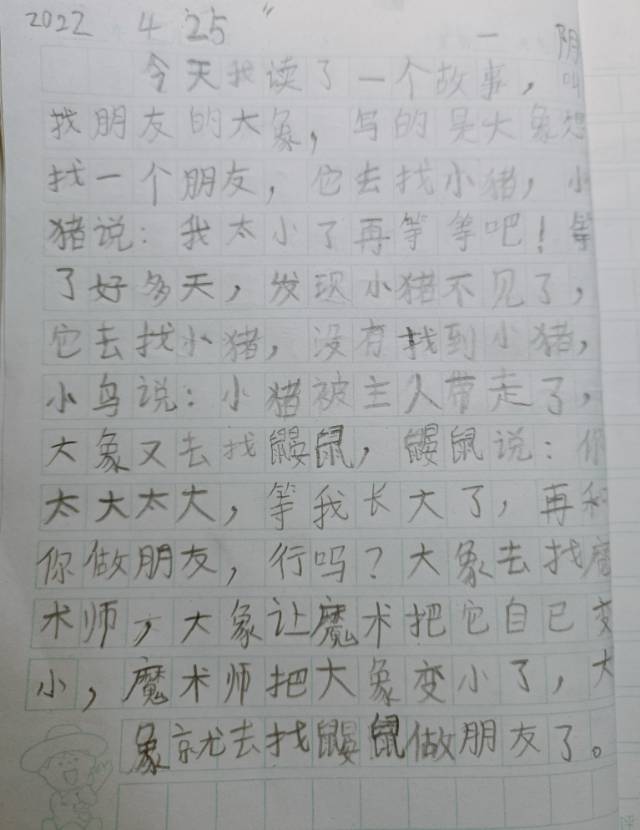 2022 4 25 一 阴
今天我读了一个故事，叫
找朋友的大象，写的是大象想
找一个朋友，它去找小猪，小
猪说：我太小了再等等吧！等
了好多天，发现小猪不见了，
它去找小猪，没有找到小猪，
小鸟说：小猪被主人带走了，
大象又去找鼹鼠，鼹鼠说：你
太大太大，等我长大了，再和
你做朋友，行吗？大象去找魔
术师，大象让魔术把它自己变
小，魔术师把大象变小了，大
象就去找鼹鼠做朋友了。